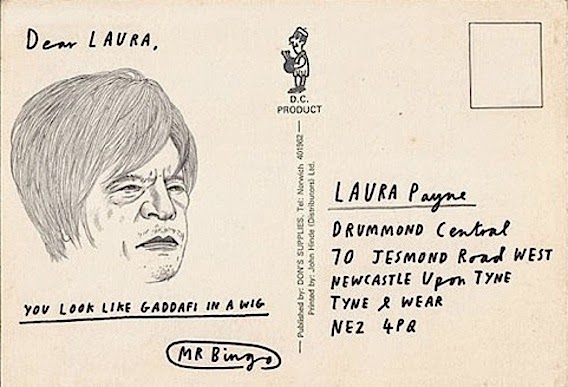 Dear LAURA,
YOU LOOK LIKE GADDAFI IN A WIG
MR Bingo
D.C.
PRODUCT
Published by: DON'S SUPPLIES. Tel: Norwich 401962
Printed by: John Hinde (Distributors) Ltd.
LAURA Payne
DRUMMOND Central
70 JESMOND Road WEST
NEWCASTLE Upon TYNE
TYNE & WEAR
NE2 4PQ